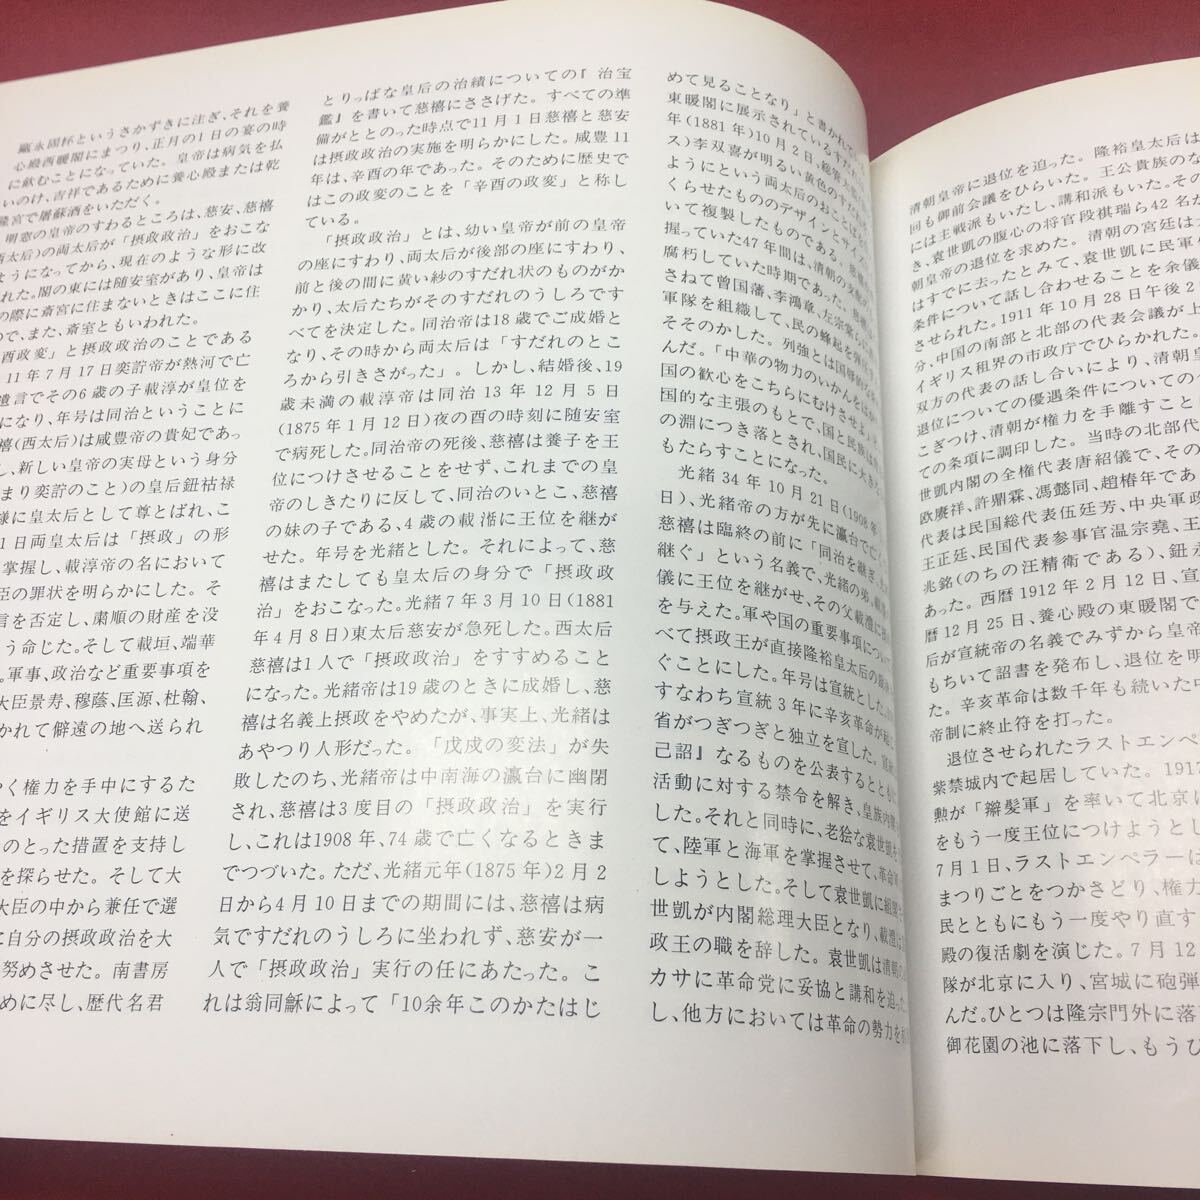 甌永固杯というさかずきに注ぎ、それを養
心殿西暖閣にまつり、正月の1日の宴の時
に飲むことになっていた。皇帝は病気を払
いのけ、吉祥であるために養心殿または乾
隆宮で屠蘇酒をいただく。
明窓の皇帝のすわるところは、慈安、慈禧
西太后)の両太后が「摂政政治」をおこな
ようになってから、現在のような形に改
れた。閣の東には随安室があり、皇帝は
の際に斎宮に住まないときはここに住
ので、また、斎室ともいわれた。
酉政変」と摂政政治のことである
11年7月17日奕詝帝が熱河で亡
遺言でその6歳の子載淳が皇位を
になり、年号は同治ということに
禧(西太后)は咸豊帝の貴妃であっ
し、新しい皇帝の実母という身分
まり奕詝のこと)の皇后鈕祜禄
様に皇太后として尊とばれ、こ
1日両皇太后は「摂政」の形
掌握し、載淳帝の名において
臣の罪状を明らかにした。そ
言を否定し、粛順の財産を没
う命じた。そして載垣、端華
。軍事、政治など重要事項を
大臣景寿、穆蔭、匡源、杜翰、
かれて僻遠の地へ送られ
く権力を手中にするた
をイギリス大使館に送
のとった措置を支持し
を探らせた。そして大
大臣の中から兼任で選
に自分の摂政政治を大
努めさせた。南書房
めに尽し、歴代名君
とりっぱな皇后の治績についての『治宝
鑑』を書いて慈禧にささげた。すべての準
備がととのった時点で11月1日慈禧と慈安
は摂政政治の実施を明らかにした。咸豊11
年は、辛酉の年であった。そのために歴史で
はこの政変のことを「辛酉の政変」と称し
ている。
「摂政政治」とは、幼い皇帝が前の皇帝
の座にすわり、両太后が後部の座にすわり、
前と後の間に黄い紗のすだれ状のものがか
かり、太后たちがそのすだれのうしろです
べてを決定した。同治帝は18歳でご成婚と
なり、その時から両太后は「すだれのとこ
ろから引きさがった」。しかし、結婚後、19
歳未満の載淳帝は同治13年12月5日
(1875年1月12日)夜の酉の時刻に随安室
で病死した。同治帝の死後、慈禧は養子を王
位につけさせることをせず、これまでの皇
帝のしきたりに反して、同治のいとこ、慈禧
の妹の子である、4歳の載湉に王位を継が
せた。年号を光緒とした。それによって、慈
禧はまたしても皇太后の身分で「摂政政
治」をおこなった。光緒7年3月10日(1881
年4月8日)東太后慈安が急死した。西太后
慈禧は1人で「摂政政治」をすすめること
になった。光緒帝は19歳のときに成婚し、慈
禧は名義上摂政をやめたが、事実上、光緒は
あやつり人形だった。「戊戌の変法」が失
敗したのち、光緒帝は中南海の瀛台に幽閉
され、慈禧は3度目の「摂政政治」を実行
し、これは1908年、74歳で亡くなるときま
でつづいた。ただ、光緒元年(1875年)2月2
日から4月10日までの期間には、慈禧は病
気ですだれのうしろに坐われず、慈安が一
人で「摂政政治」実行の任にあたった。こ
れは翁同龢によって「10余年このかたはじ
めて見ることなり」と書かれてい
東暖閣に展示されているすだれ
年(1881年)10月2日、総管太監
ス)李双喜が明るい黄色のすだれ
ようにという両太后のおことばを
くらせたもののデザインとサイズ
いて複製したものである。慈禧が
握っていた47年間は、清朝の支配
腐朽していた時期であった。慈禧は
さねて曾国藩、李鴻章、左宗棠らに
軍隊を組織して、民の蜂起を弾圧
そそのかした。列強とは国辱的
んだ。「中華の物力のいかんをはか
国の歓心をこちらにむけさせよ」
国的な主張のもとで、国と民族は
の淵につき落とされ、国民に大きな
もたらすことになった。
光緒34年10月21日(1908年
日)、光緒帝の方が先に瀛台で亡く
慈禧は臨終の前に「同治を継ぎ、
継ぐ」という名義で、光緒の弟、載灃
儀に王位を継がせ、その父載灃に
を与えた。軍や国の重要事項につい
べて摂政王が直接隆裕皇太后の
ぐことにした。年号は宣統とした。
すなわち宣統3年に辛亥革命が起
省がつぎつぎと独立を宣した。
己詔』なるものを公表するととも
活動に対する禁令を解き、皇族内閣
した。それと同時に、老獪な袁世凱を
て、陸軍と海軍を掌握させて、革命
しようとした。そして袁世凱に組閣
世凱が内閣総理大臣となり、載灃は
政王の職を辞した。袁世凱は清朝の
カサに革命党に妥協と講和を迫った
し、他方においては革命の勢力を
清朝皇帝に退位を迫った。隆裕皇太后は
回も御前会議をひらいた。王公貴族のな
には主戦派もいたし、講和派もいた。その
き、袁世凱の腹心の将官段祺瑞ら42名が
朝皇帝の退位を求めた。清朝の宮廷は大
はすでに去ったとみて、袁世凱に民軍
条件について話し合わせることを余儀
させられた。1911年10月28日午後2
分、中国の南部と北部の代表会議が上
イギリス租界の市政庁でひらかれた。
双方の代表の話し合いにより、清朝皇
退位についての優遇条件についての
こぎつけ、清朝が権力を手離すこと
ての条項に調印した。当時の北部代
世凱内閣の全権代表唐紹儀で、その
欧賡祥、許鼎霖、馮懿同、趙椿年であ
代表は民国総代表伍廷芳、中央軍政
王正廷、民国代表参事官温宗堯、王
兆銘(のちの汪精衛である)、鈕永
あった。西暦1912年2月12日、宣
暦12月25日、養心殿の東暖閣で
后が宣統帝の名義でみずから皇帝
もちいて詔書を発布し、退位を明
た。辛亥革命は数千年も続いた中
帝制に終止符を打った。
退位させられたラストエンペ
紫禁城内で起居していた。1917
勲が「辮髪軍」を率いて北京に
をもう一度王位につけようとし
7月1日、ラストエンペラーは
まつりごとをつかさどり、権力
民とともにもう一度やり直す
殿の復活劇を演じた。7月12
隊が北京に入り、宮城に砲弾
んだ。ひとつは隆宗門外に落
御花園の池に落下し、もうひ